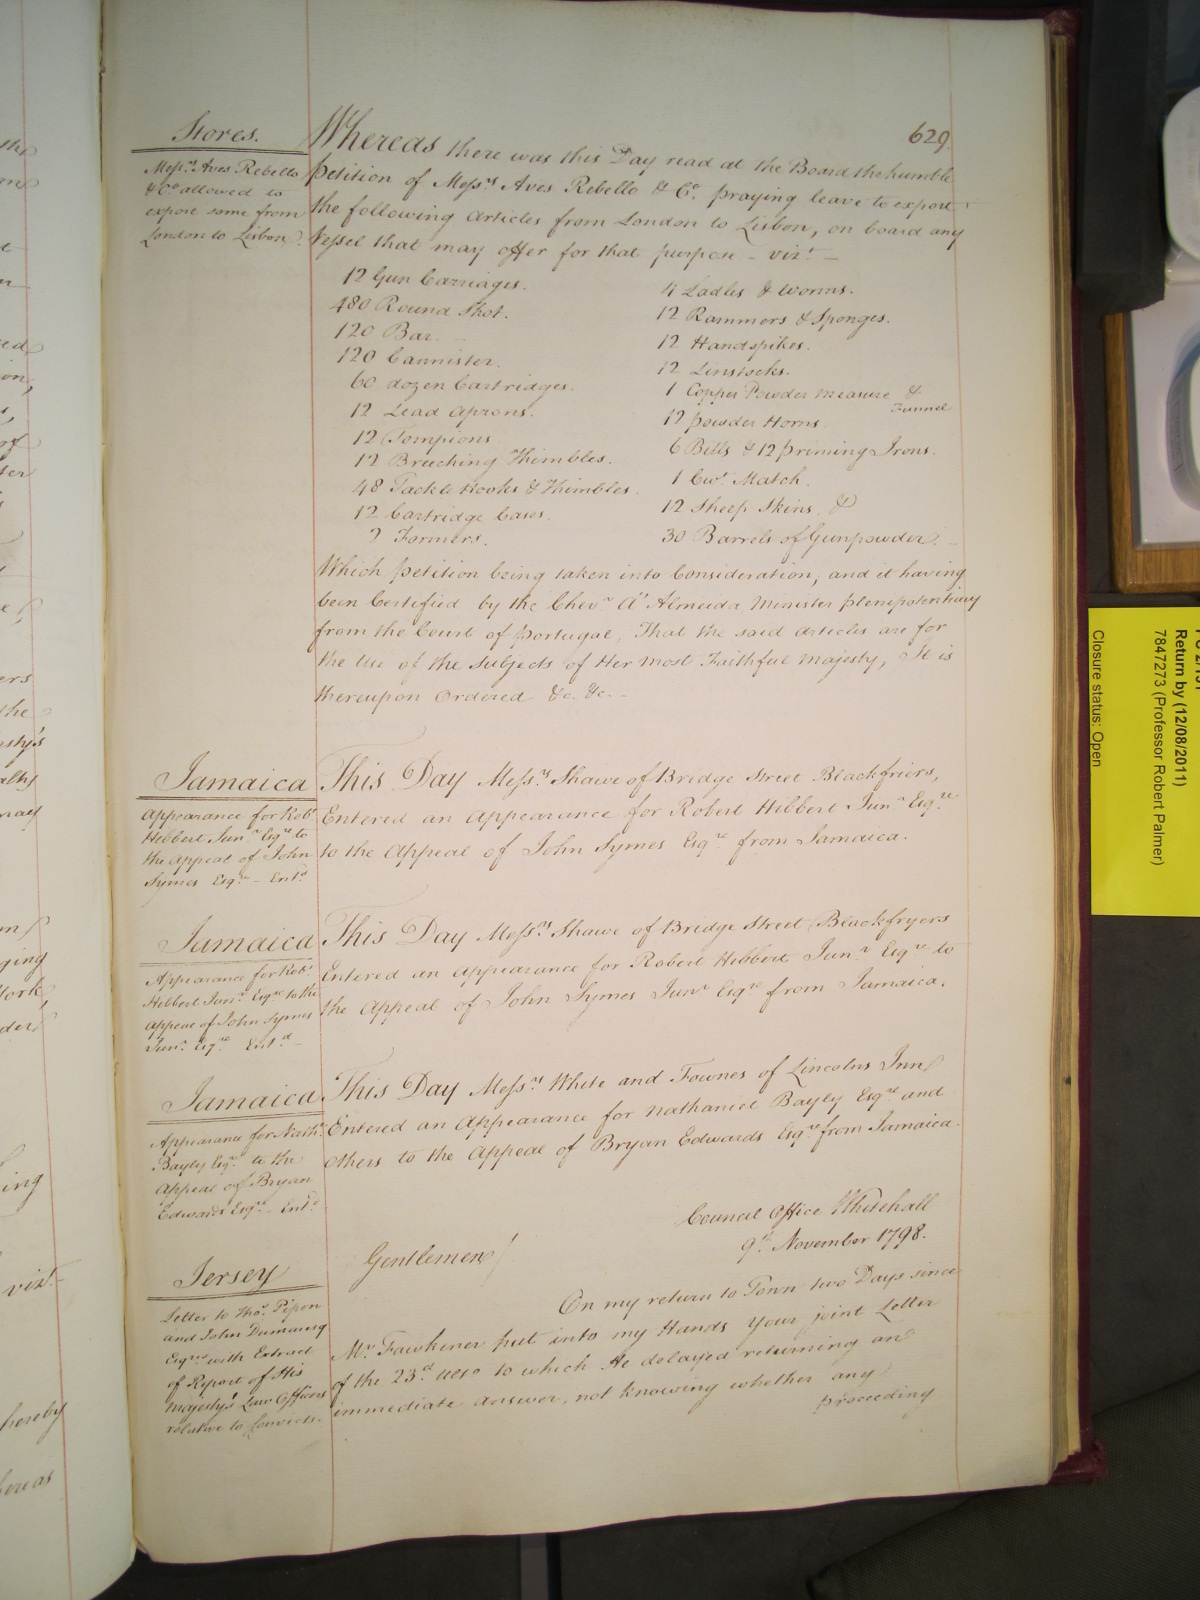 629
Stores.
Mess.rs Aves Rebello
& Co. allowed to
export some from
London to Lisbon.
Whereas there was this Day read at the Board the humble
petition of Mess.rs Aves Rebello & Co. praying leave to export
the following Articles from London to Lisbon, on board any
Vessel that may offer for that purpose – vizt. –
12 Gun Carriages.
480 Round Shot.
120 Bar. –
120 Cannister.
60 dozen Cartridges.
12 Lead Aprons.
12 Tompions.
12 Breeching Thimbles.
48 Tackle Hooks & Thimbles.
12 Cartridge Cases.
2 Formers.
4 Ladles & Worms.
12 Rammers & Sponges.
12 Handspikes.
12 Linstocks.
1 Copper Powder Measure &
Funnel
12 powder Horns.
6 Bitts & 12 priming Irons.
1 Cwt. Match.
12 Sheep Skins, &
30 Barrels of Gunpowder. –
Which petition being taken into Consideration, and it having
been Certified by the Chevr. d'Almeida Minister plenipotentiary
from the Court of portugal, That the said Articles are for
the Use of the Subjects of Her most Faithful Majesty, It is
thereupon Ordered &c. &c. –
Jamaica
Appearance for Robt.
Hibbert Junr. Esqre. to
the Appeal of John
Symes Esqre. – Entd.
This Day Mess.rs Shawe of Bridge Street Blackfriers,
Entered an Appearance for Robert Hibbert Junr. Esqre.
to the Appeal of John Symes Esqre. from Jamaica.
Jamaica
Appearance for Robt.
Hibbert Junr. Esqre. to the
Appeal of John Symes
Junr. Esqre. Entd. –
This Day Mess.rs Shawe of Bridge Street Blackfryers
Entered an Appearance for Robert Hibbert Junr. Esqre. to
the Appeal of John Symes Junr. Esqre. from Jamaica.
Jamaica
Appearance for Nathl.
Bayly Esqre. to the
Appeal of Bryan
Edwards Esqre. – Entd.
This Day Mess.rs White and Fownes of Lincolns Inn
Entered an Appearance for Nathaniel Bayly Esqre. and
others to the Appeal of Bryan Edwards Esqre. from Jamaica.
Council Office Whitehall
9th. November 1798.
Jersey
Letter to Thos. Pipon
and John Dumaresq
Esqrs. with Extract
of Report of His
Majesty's Law Officers
relative to Convicts.
Gentlemen/
On my return to Town two Days since
Mr. Fawkener put into my Hands Your joint Letter
of the 23d. Ulto. to which He delayed returning an
immediate Answer, not knowing whether any
proceeding
Return by (12/08/2011)
7847273 (Professor Robert Palmer)
Closure status: Open